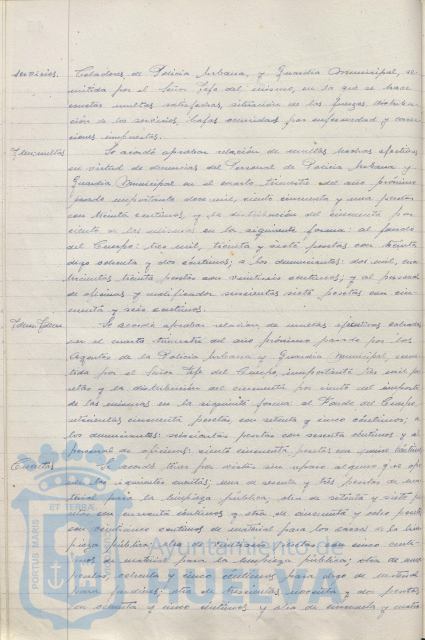 servicios. Celadores de Policía Urbana, y Guardia Municipal, re-
mitida por el Señor Jefe del mismo, en la que se hace
constar multas satisfechas, situación de las fuerzas, distribu-
ción de los servicios, bajas ocurridas por enfermedad y correc-
ciones impuestas.
Idem multas Se acordó aprobar relación de multas hechas efectivas
en virtud de denuncias del Personal de Policía Urbana y
Guardia Municipal en el cuarto trimestre del año próximo
pasado importante doce mil, ciento cincuenta y una pesetas
con treinta céntimos y la distribución del cincuenta por
ciento de las mismas en la siguiente forma: al fondo
del Cuerpo: tres mil, treinta y siete pesetas con treinta
digo ochenta y dos céntimos; a los denunciantes: dos mil, cua-
trocientas treinta pesetas con veintiseis céntimos; y al personal
de oficinas y notificador seiscientas siete pesetas con cin-
cuenta y seis céntimos.
Idem Idem Se acordó aprobar relación de multas efectivas cobradas
en el cuarto trimestre del año próximo pasado por los
Agentes de la Policía Urbana y Guardia Municipal, remi-
tida por el Señor Jefe del Cuerpo, importante tres mil pe-
setas y la distribución del cincuenta por ciento del importe
de las mismas en la siguiente forma al Fondo del Cuerpo,
setecientas cincuenta pesetas, con setenta y cinco céntimos; a
los denunciantes: seiscientas pesetas con sesenta céntimos y al
personal de oficinas: ciento cincuenta pesetas con quince céntimos
Cuentas Se acordó tener por vistas sin reparo alguno y se apro-
aron las siguientes cuentas: una de sesenta y tres pesetas de ma-
terial para la limpieza pública; otra de setenta y siete pe-
setas con cuarenta céntimos y otra de cincuenta y ocho pesetas
con veinticinco céntimos de material para los carros de la lim-
pieza pública; otra de pesetas con cinco cénti-
mos de material para la limpieza pública; otra de
pesetas, ochenta y cinco céntimos para digo de material
para jardines; otra de trescientas noventa y dos pesetas
con ochenta y cinco céntimos y otra de cincuenta y cuatro
PORTUS MARIS
ET TERRAE
Ayuntamiento de
HUELVA